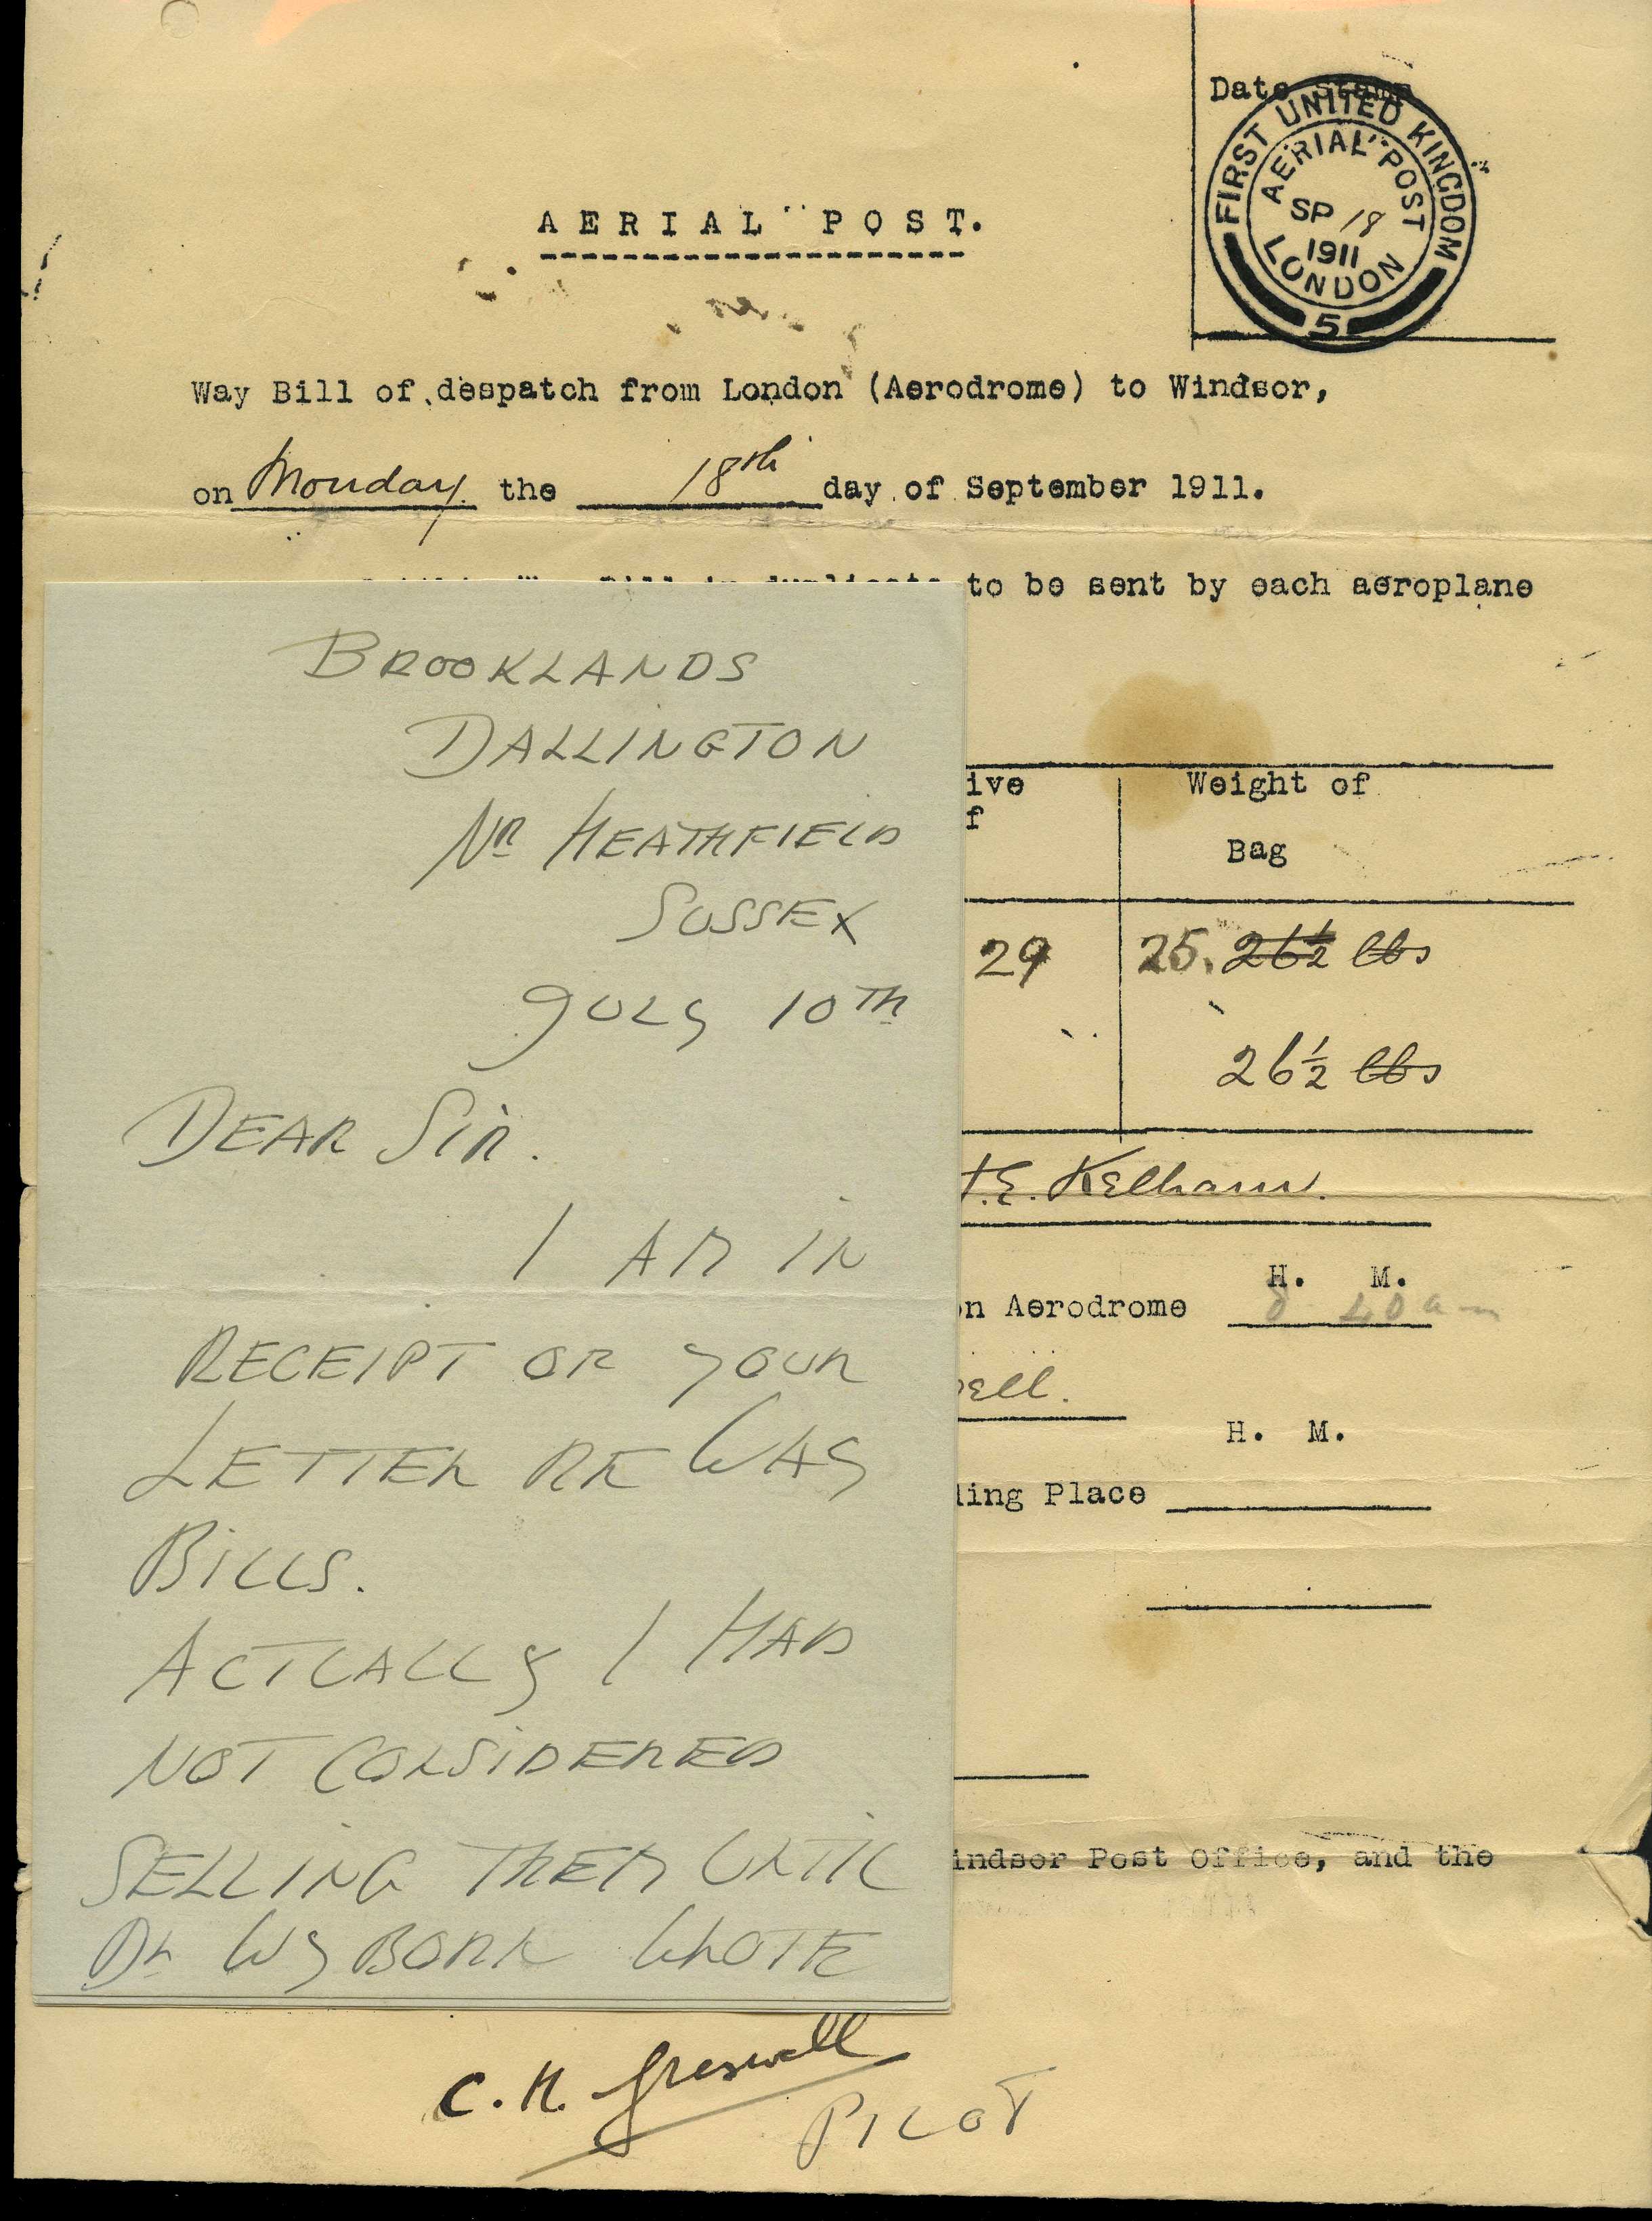 Date Stamp
FIRST UNITED KINGDOM
AERIAL POST
SP 18
1911
LONDON
5
AERIAL POST.
Way Bill of despatch from London (Aerodrome) to Windsor,
on Monday the 18th day of September 1911.
to be sent by each aeroplane
ive
f
Weight of
Bag
29 25. 26½ lbs
26½ lbs
.E. Kelham.
H. M.
n Aerodrome 8 40 am
ell.
H. M.
ling Place
indsor Post Office, and the
BROOKLANDS
DALLINGTON
NR HEATHFIELD
SUSSEX
JULY 10TH
DEAR SIR.
I AM IN
RECEIPT OF YOUR
LETTER RE WAY
BILLS.
ACTUALLY I HAD
NOT CONSIDERED
SELLING THEM UNTIL
DR WYBORN WROTE
C. H. Greswell
PILOT